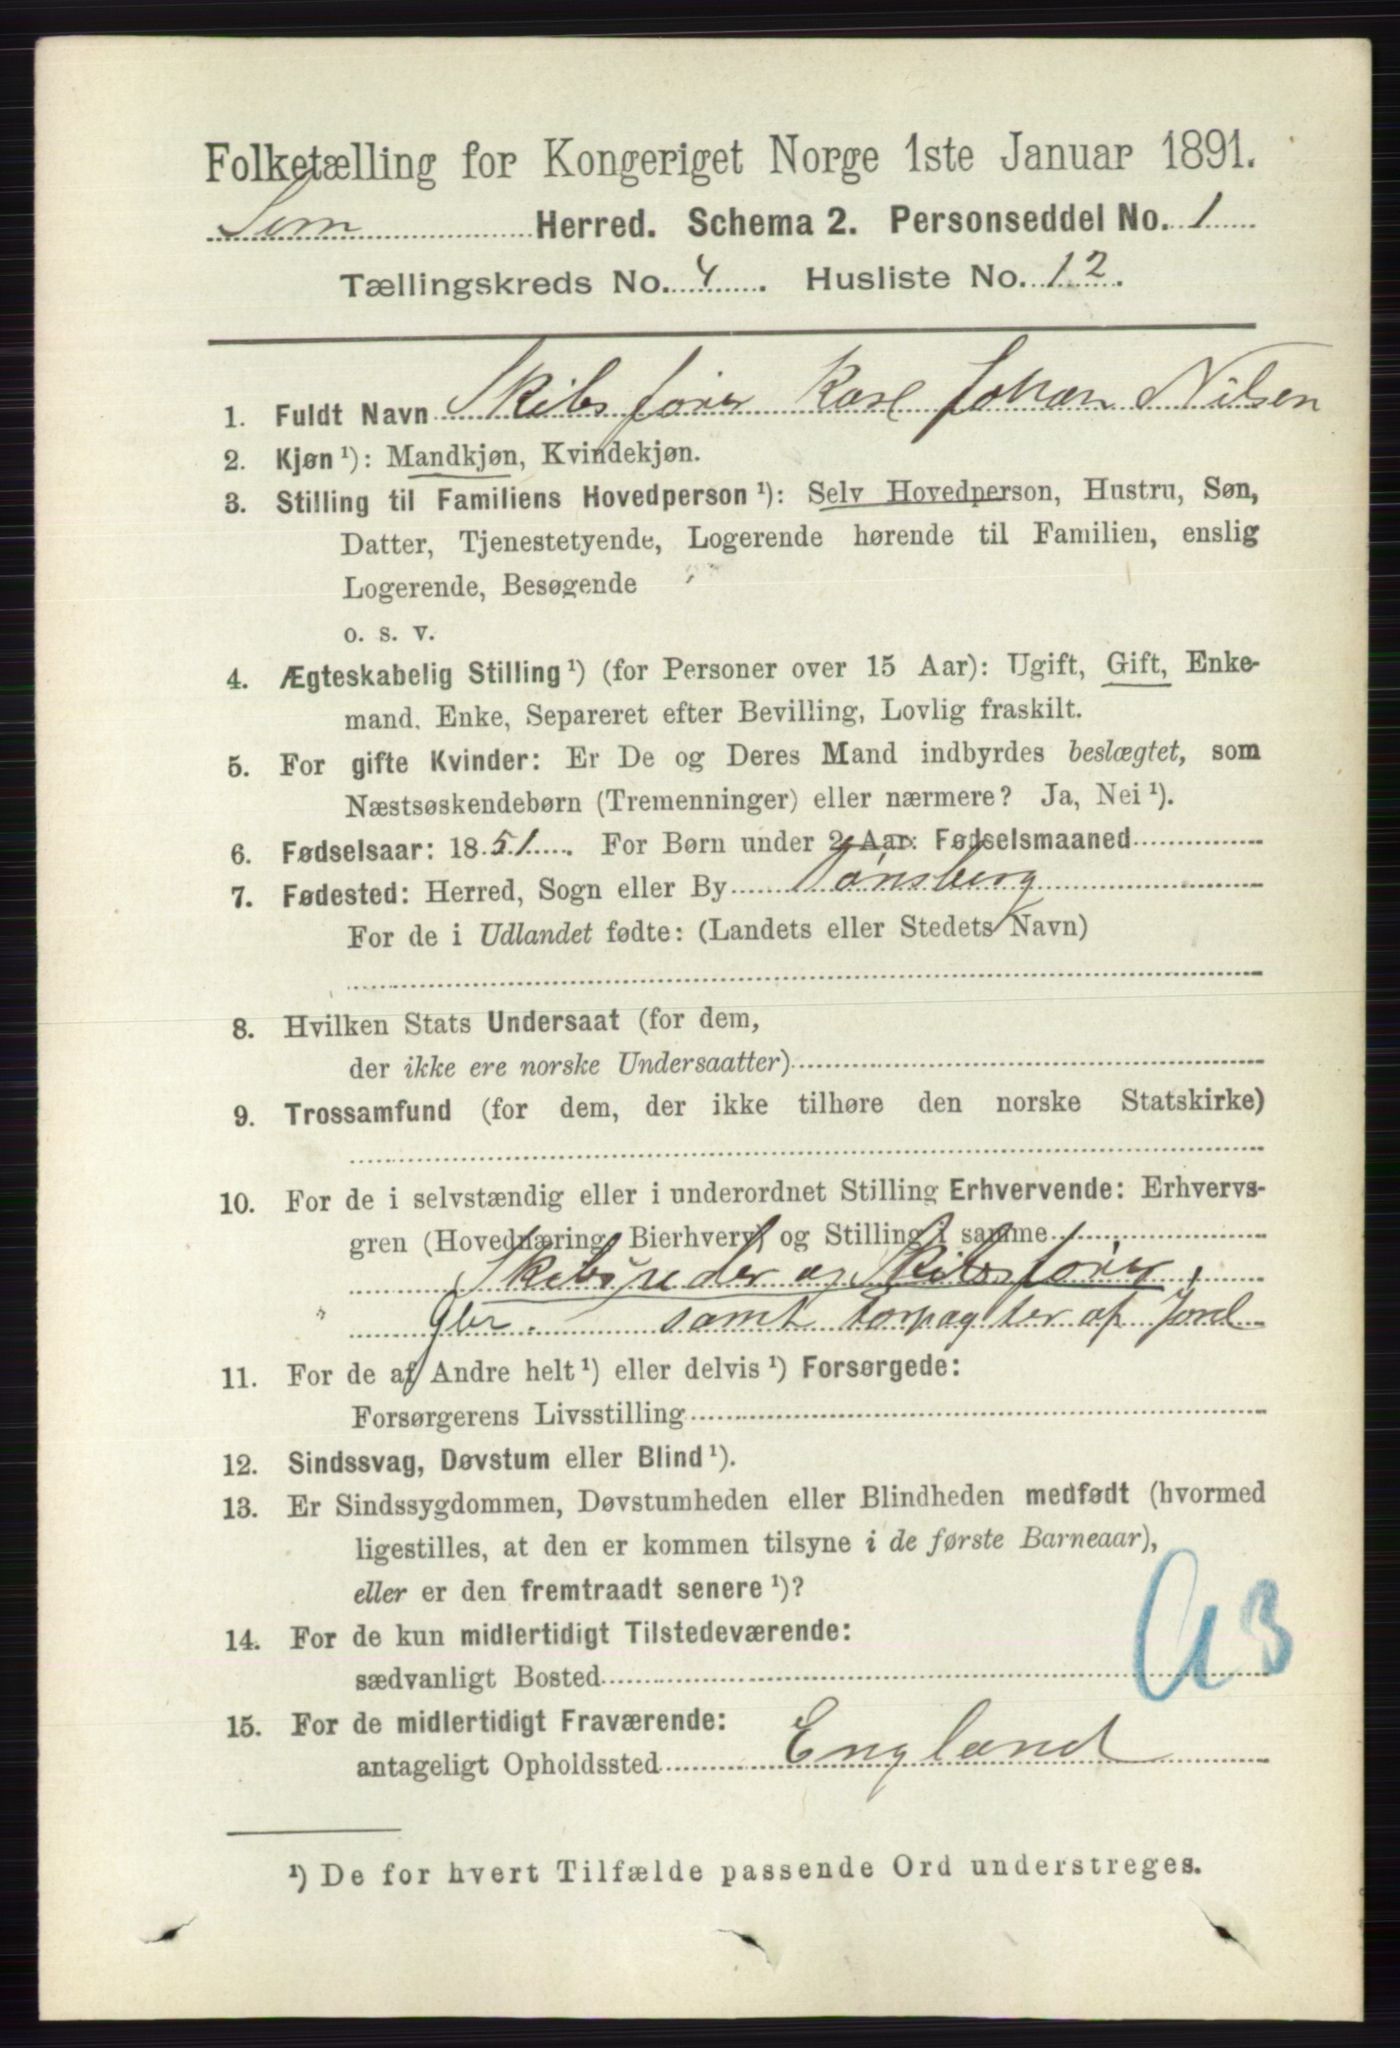 Folketælling for Kongeriget Norge 1ste Januar 1891.
Sem Herred. Schema 2. Personseddel No. 1
Tællingskreds No. 4. Husliste No. 12.
1. Fuldt Navn Skibsfører Karl Johan Nilsen
2. Kjøn ¹): Mandkjøn, Kvindekjøn.
3. Stilling til Familiens Hovedperson ¹): Selv Hovedperson, Hustru, Søn,
Datter, Tjenestetyende, Logerende hørende til Familien, enslig
Logerende, Besøgende
o. s. v.
4. Ægteskabelig Stilling ¹) (for Personer over 15 Aar): Ugift, Gift, Enke-
mand, Enke, Separeret efter Bevilling, Lovlig fraskilt.
5. For gifte Kvinder: Er De og Deres Mand indbyrdes beslægtet, som
Næstsøskendebørn (Tremenninger) eller nærmere? Ja, Nei ¹).
6. Fødselsaar: 1851. For Børn under 2 Aar: Fødselsmaaned
7. Fødested: Herred, Sogn eller By Tønsberg
For de i Udlandet fødte: (Landets eller Stedets Navn)
8. Hvilken Stats Undersaat (for dem,
der ikke ere norske Undersaatter)
9. Trossamfund (for dem, der ikke tilhøre den norske Statskirke)
10. For de i selvstændig eller i underordnet Stilling Erhvervende: Erhvervs-
gren (Hovednæring, Bierhverv) og Stilling i samme
Skibsreder og Skibsfører,
samt forpagter af Jord
11. For de af Andre helt ¹) eller delvis ¹) Forsørgede:
Forsørgerens Livsstilling
12. Sindssvag, Døvstum eller Blind ¹).
13. Er Sindssygdommen, Døvstumheden eller Blindheden medfødt (hvormed
ligestilles, at den er kommen tilsyne i de første Barneaar),
eller er den fremtraadt senere ¹)?
14. For de kun midlertidigt Tilstedeværende:
sædvanligt Bosted
15. For de midlertidigt Fraværende:
antageligt Opholdssted England
¹) De for hvert Tilfælde passende Ord understreges.